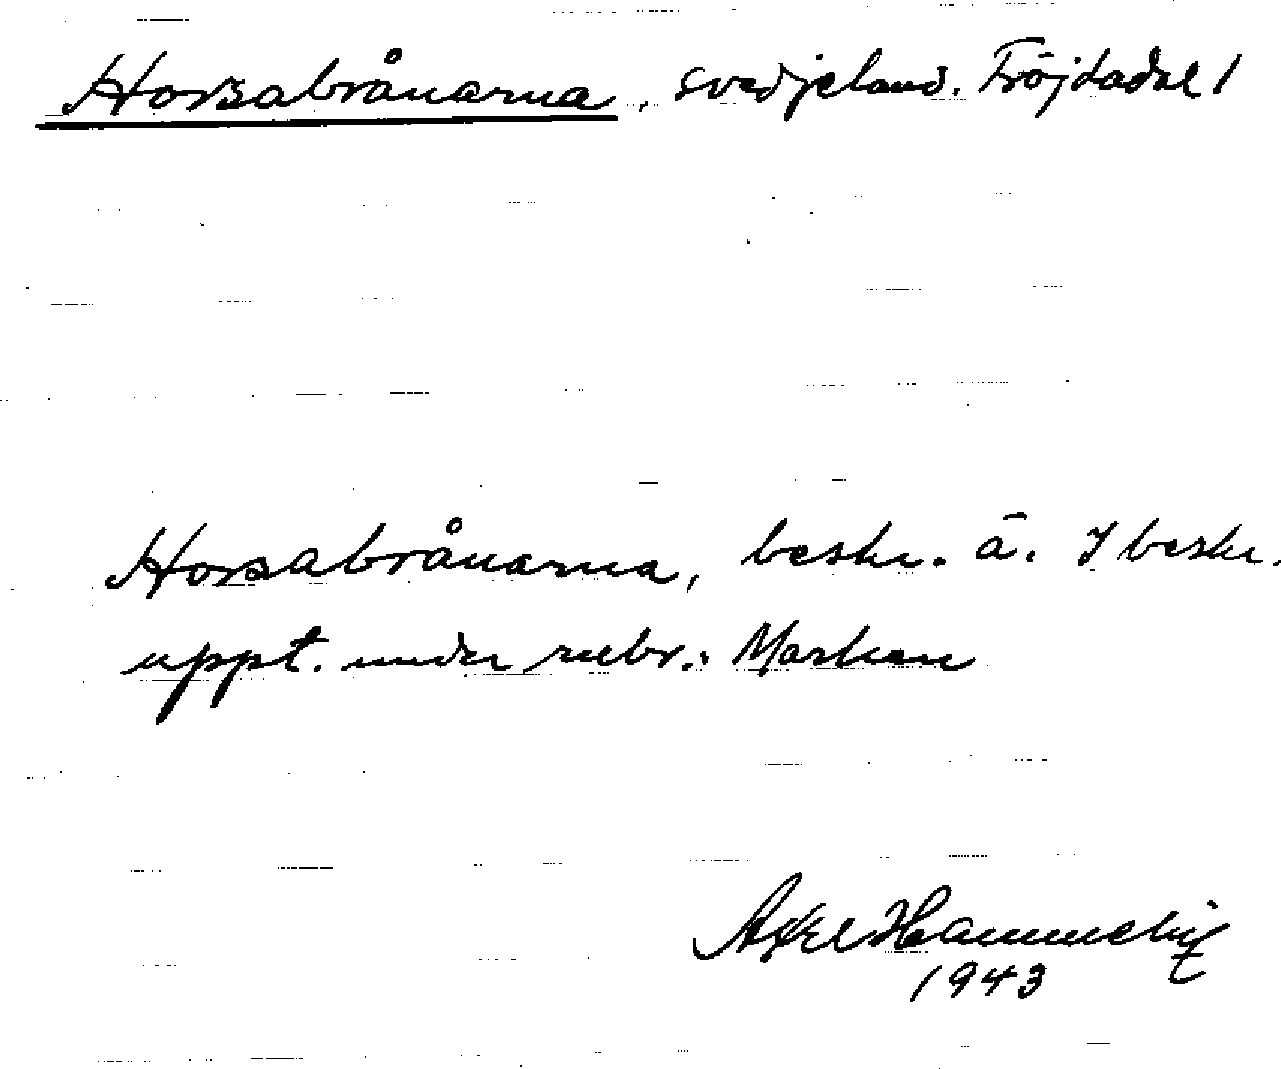 Horsabrånarna, svedjeland. Fröjdadal 1
Horsabrånarna, beskr. ä. I beskr.
uppt. under rubr.: Marken
Axel Hammelin
1943